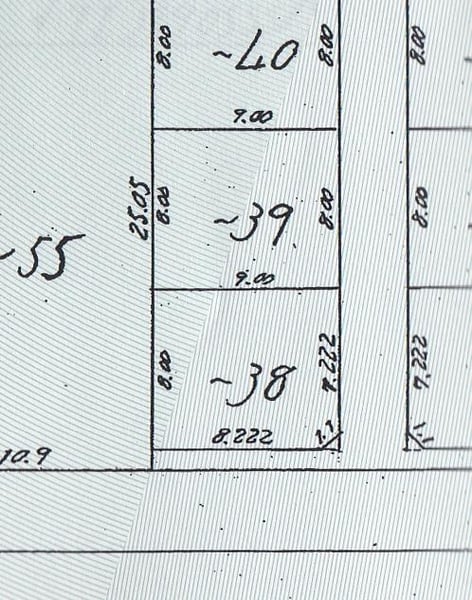 8.00 ~40 8.00 8.00
9.00
25.05 8.00 ~39 8.00 8.00
~55
9.00
8.00 ~38 7.222 7.222
8.222
10.9